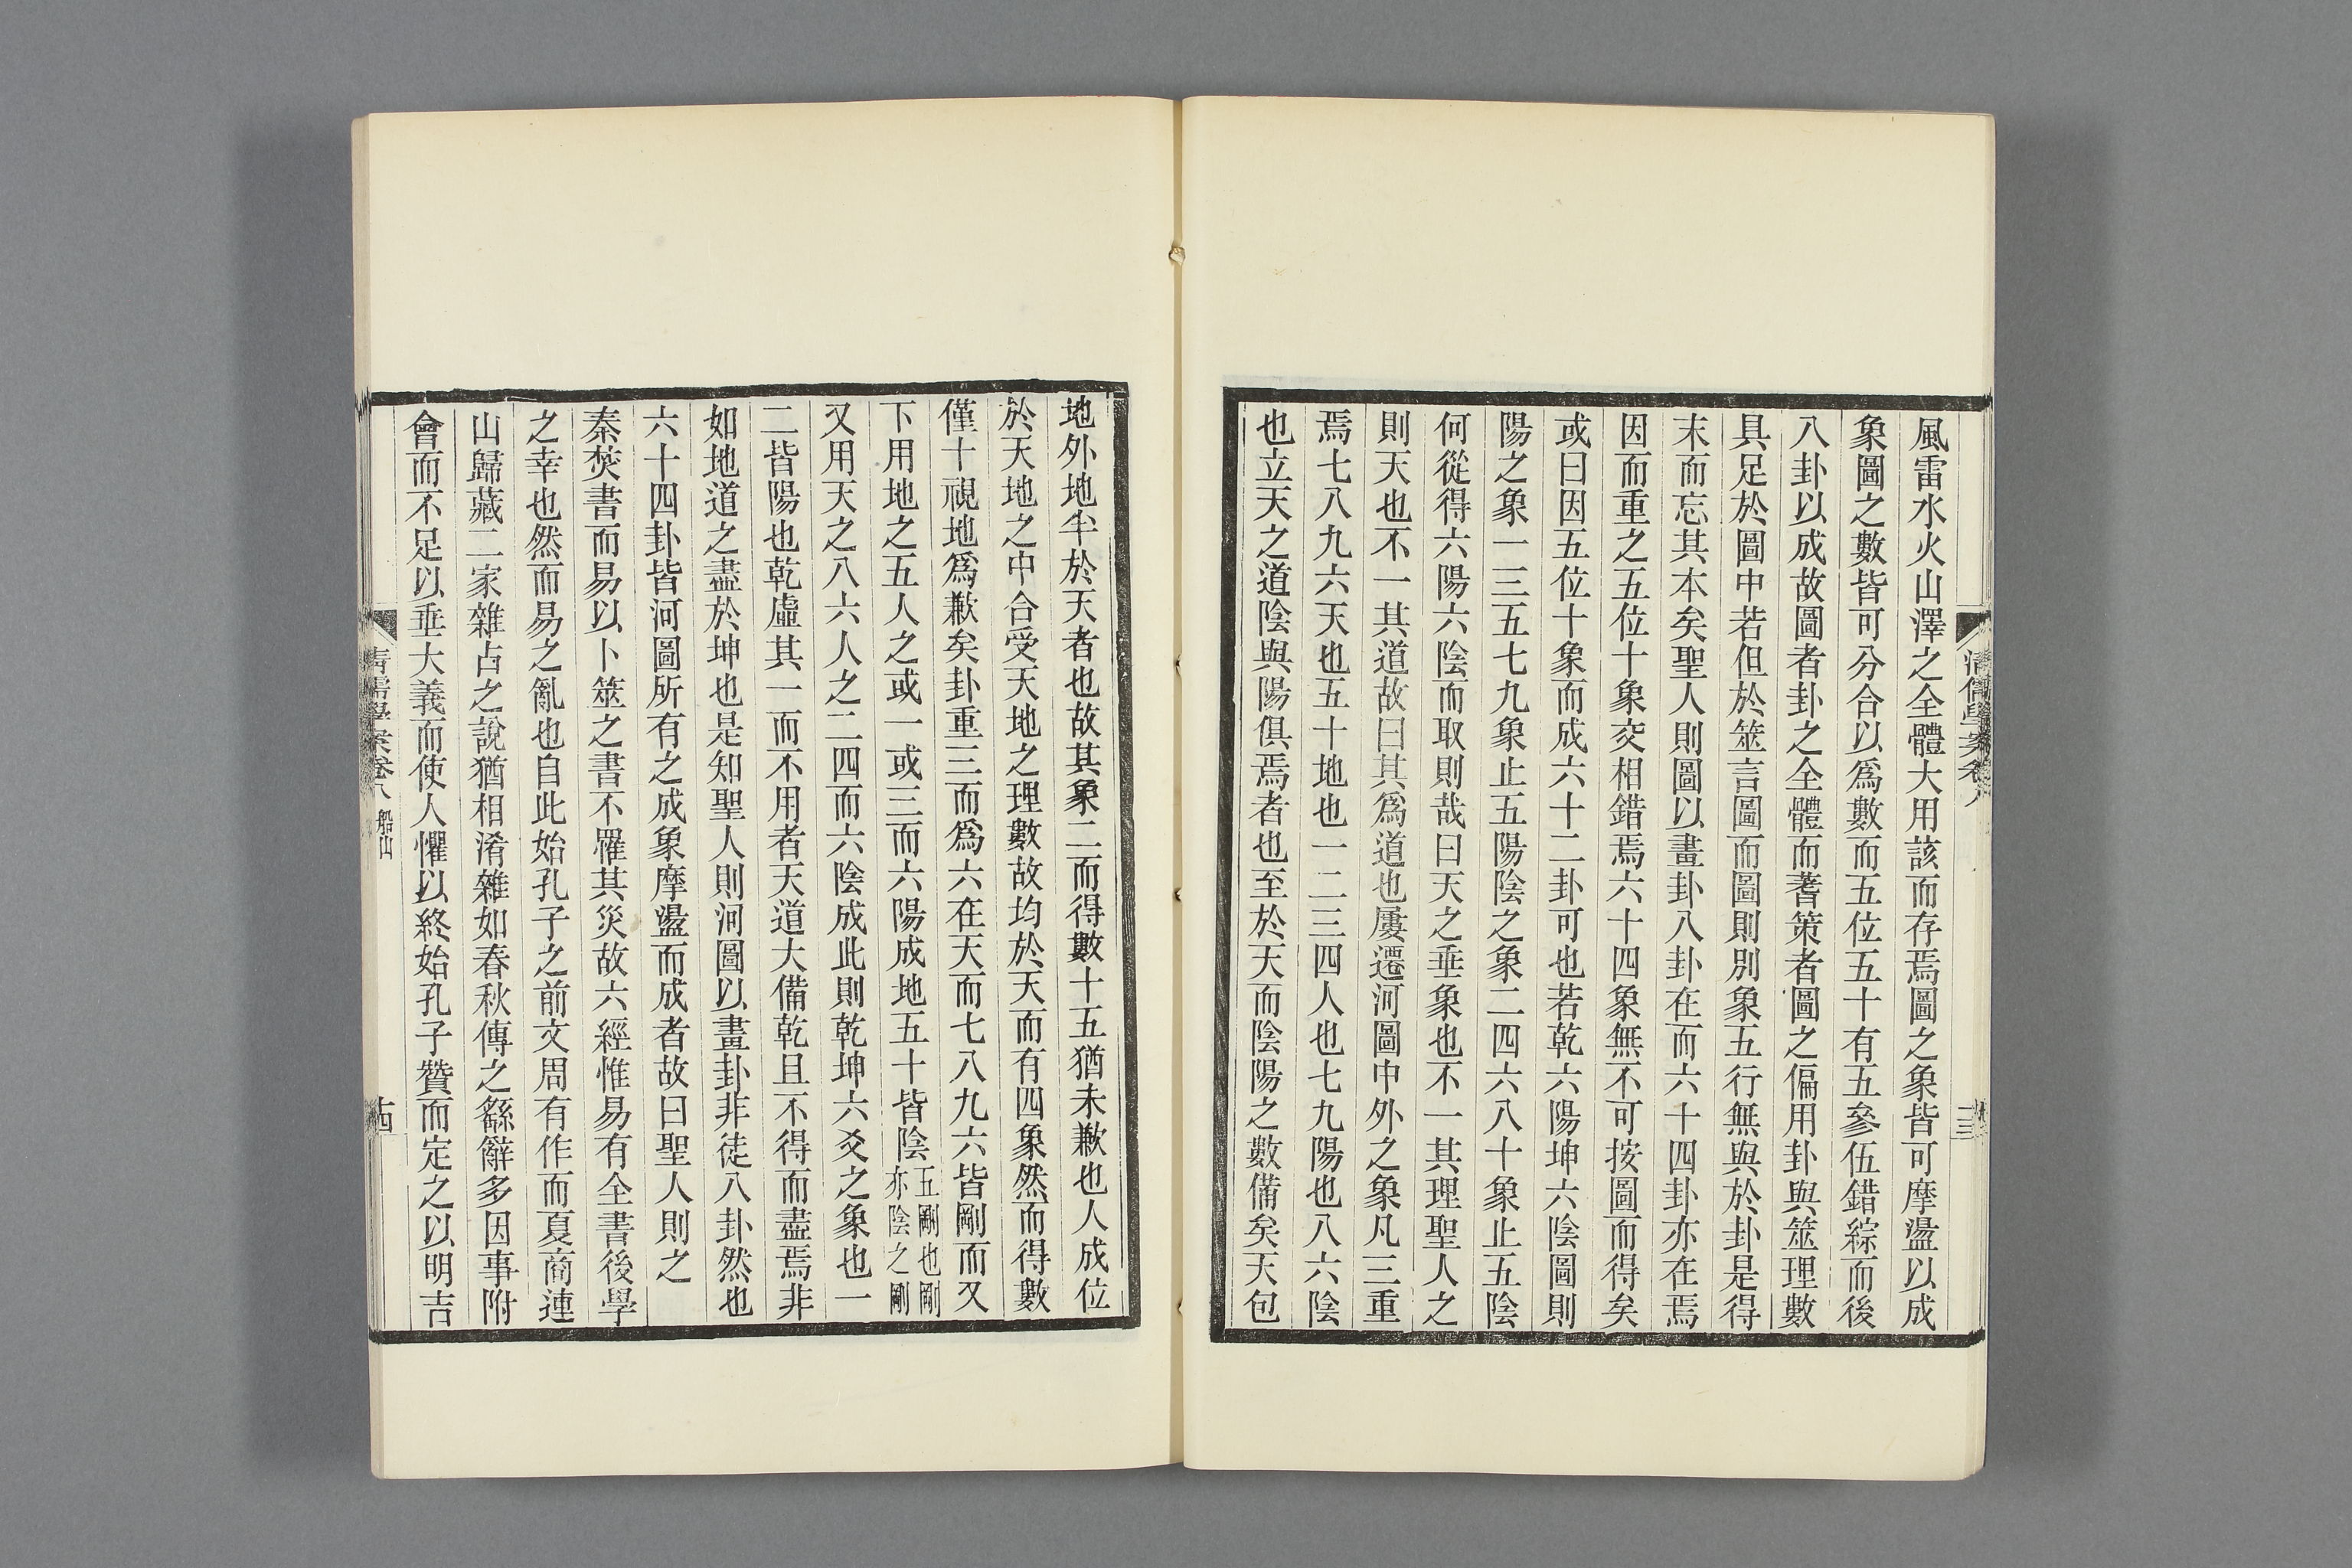 清儒學案卷八
十三
風雷水火山澤之全體大用該而存焉圖之象皆可摩盪以成
象圖之數皆可分合以爲數而五位五十有五參伍錯綜而後
八卦以成故圖者卦之全體而蓍策者圖之偏用卦與筮理數
具足於圖中若但於筮言圖而圖則別象五行無與於卦是得
末而忘其本矣聖人則圖以畫卦八卦在而六十四卦亦在焉
因而重之五位十象交相錯焉六十四象無不可按圖而得矣
或曰因五位十象而成六十二卦可也若乾六陽坤六陰圖則
陽之象一三五七九象止五陽陰之象二四六八十象止五陰
何從得六陽六陰而取則哉曰天之垂象也不一其理聖人之
則天也不一其道故曰其爲道也屢遷河圖中外之象凡三重
焉七八九六天也五十地也一二三四人也七九陽也八六陰
也立天之道陰與陽俱焉者也至於天而陰陽之數備矣天包
地外地半於天者也故其象二而得數十五猶未歉也人成位
於天地之中合受天地之理數故均於天而有四象然而得數
僅十視地爲歉矣卦重三而爲六在天而七八九六皆剛而又
下用地之五人之或一或三而六陽成地五十皆陰五剛也剛亦陰之剛
又用天之八六人之二四而六陰成此則乾坤六爻之象也一
二皆陽也乾虛其一而不用者天道大備乾且不得而盡焉非
如地道之盡於坤也是知聖人則河圖以畫卦非徒八卦然也
六十四卦皆河圖所有之成象摩盪而成者故曰聖人則之
秦焚書而易以卜筮之書不罹其災故六經惟易有全書後學
之幸也然而易之亂也自此始孔子之前文周有作而夏商連
山歸藏二家雜占之說猶相淆雜如春秋傳之繇辭多因事附
會而不足以垂大義而使人懼以終始孔子贊而定之以明吉
清儒學案卷八 船山
十四